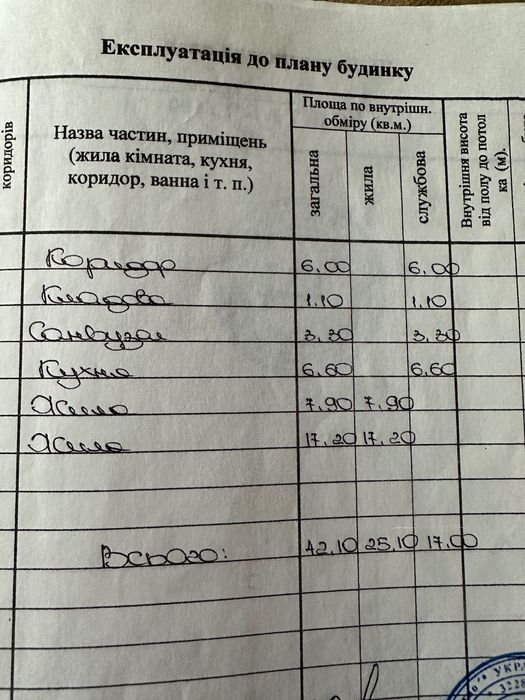 Експлуатація до плану будинку
коридорів
Назва частин, приміщень
(жила кімната, кухня,
коридор, ванна і т. п.)
Площа по внутрішн.
обміру (кв.м.)
загальна
жила
службова
Внутрішня висота
від полу до потол
ка (м).
Коридор 6.00 6.00
Кладова 1.10 1.10
Санвузел 3.30 3.30
Кухня 6.60 6.60
Жила 7.90 7.90
Жила 17.20 17.20
Всього: 42.10 25.10 17.00
УКРА